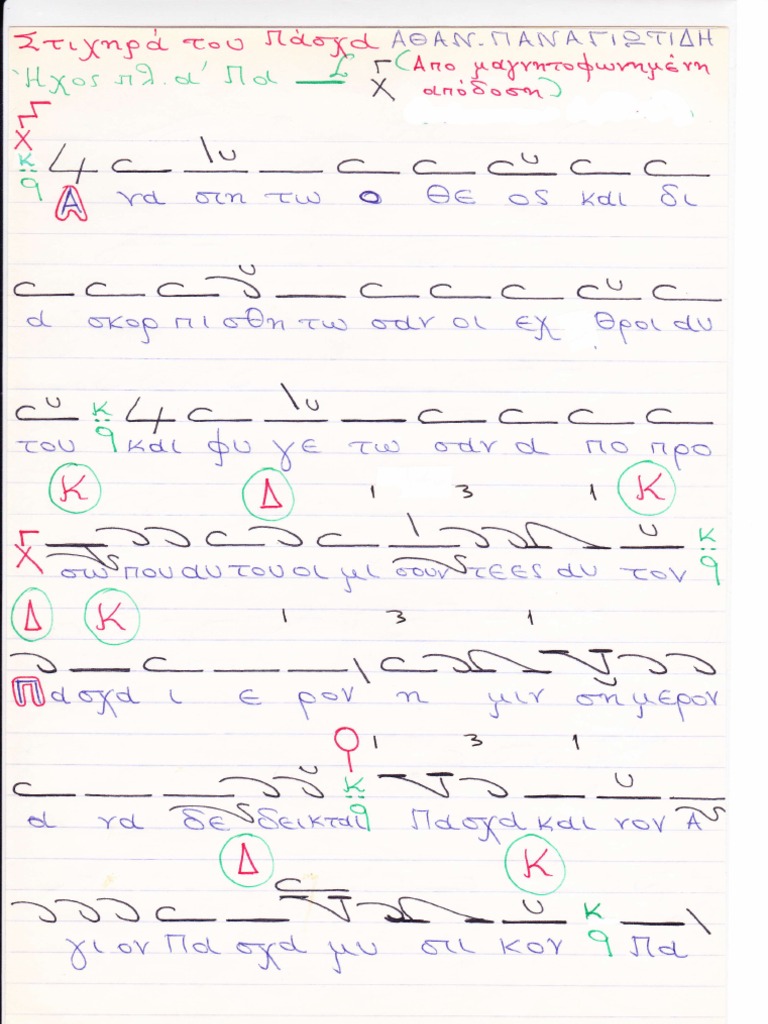 Στιχηρά του Πάσχα ΑΘΑΝ. ΠΑΝΑΓΙΩΤΙΔΗ
Ἦχος πλ. α' Πα (Απο μαγνητοφωνημένη
απόδοση)
Α να στη τω ο θε ος και δι
α σκορ πι σθη τω σαν οι εχ θροι αυ
του και φυ γε τω σαν α πο προ
Κ Δ 1 3 1 Κ
σω που αυ του οι μι σουν τεες αυ τον
Δ Κ 1 3 1
Πασχα ι ε ρον η μιν σημερον
1 3 1
α να δε δεικται Πασχα και νον Α
Δ Κ
γι ον Πα σχα μυ στι κον Πα